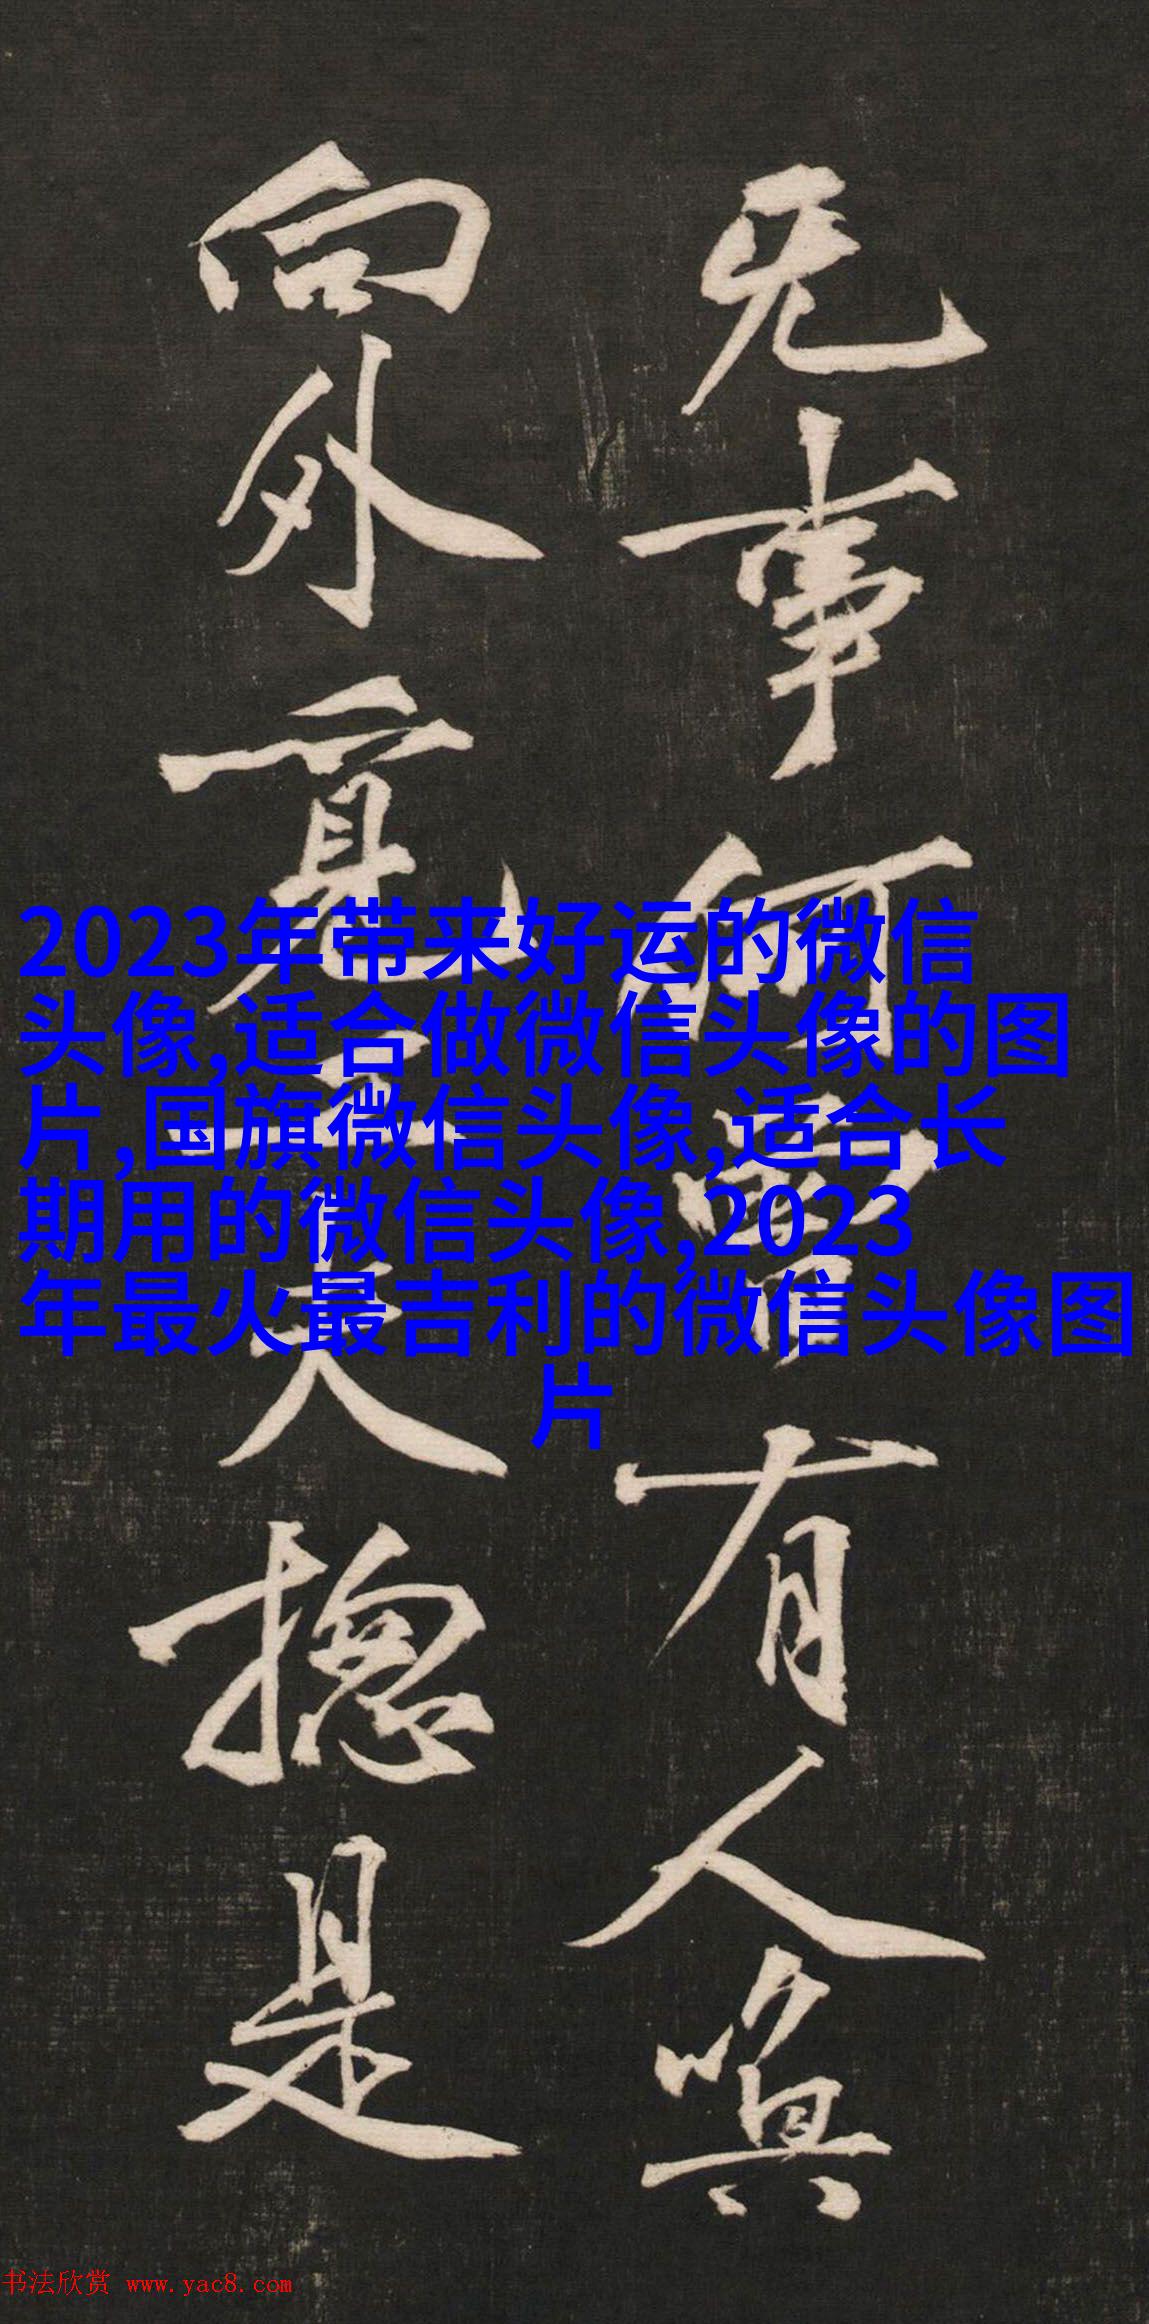 无事何曾有人
向外覓工夫揔是
2023年带来好运的微信
头像,适合做微信头像的图
片,国旗微信头像,适合长
期用的微信头像,2023
年最火最吉利的微信头像图
片
书法欣赏 www.yac8.com